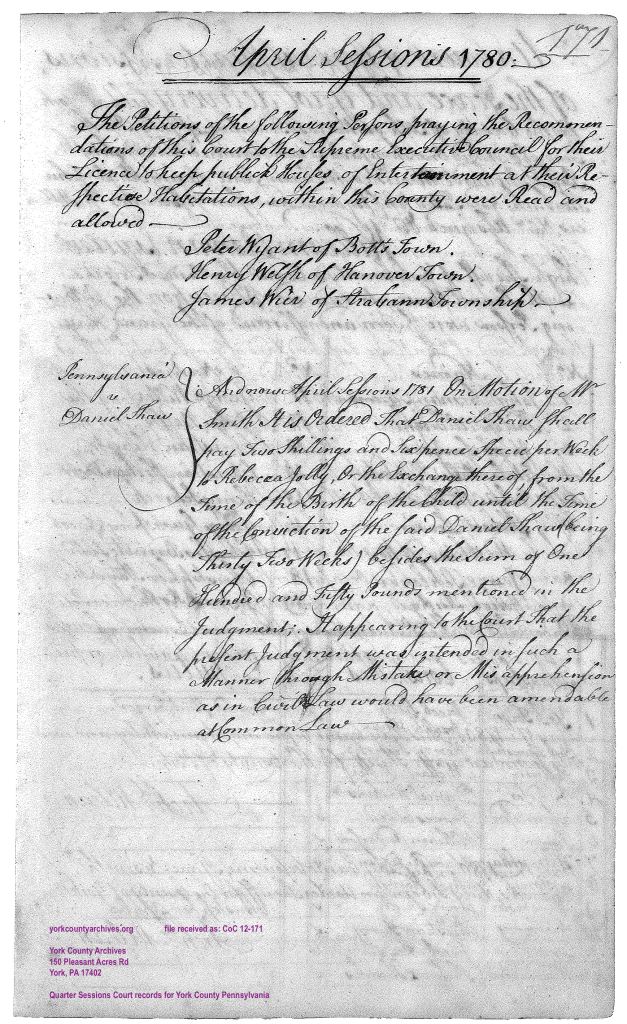 171
April Sessions 1780.
The Petitions of the following Persons praying the Recommen-
dations of this Court to the Supreme Executive Council for their
Licence to keep publick Houses of Entertainment at their Re-
spective Habitations, within this County were Read and
allowed
Peter Wyant of Botts Town.
Henry Welsh of Hanover Town.
James Wier of Strabann Township.
Pennsylvania
vs
Daniel Shaw
And now April Sessions 1781 On Motion of Mr
Smith It is Ordered That Daniel Shaw shall
pay Two Shillings and Six pence Specie per Week
to Rebecca Jolly, Or the Exchange thereof, from the
Time of the Birth of the Child until the Time
of the Conviction of the said Daniel Shaw (being
Thirty Two Weeks) besides the Sum of One
Hundred and Fifty Pounds mentioned in the
Judgment; It appearing to the Court That the
present Judgment was intended in such a
Manner through Mistake or Mis apprehension
as in Civil Law would have been amendable
at Common Law
yorkcountyarchives.org file received as: CoC 12-171
York County Archives
150 Pleasant Acres Rd
York, PA 17402
Quarter Sessions Court records for York County Pennsylvania